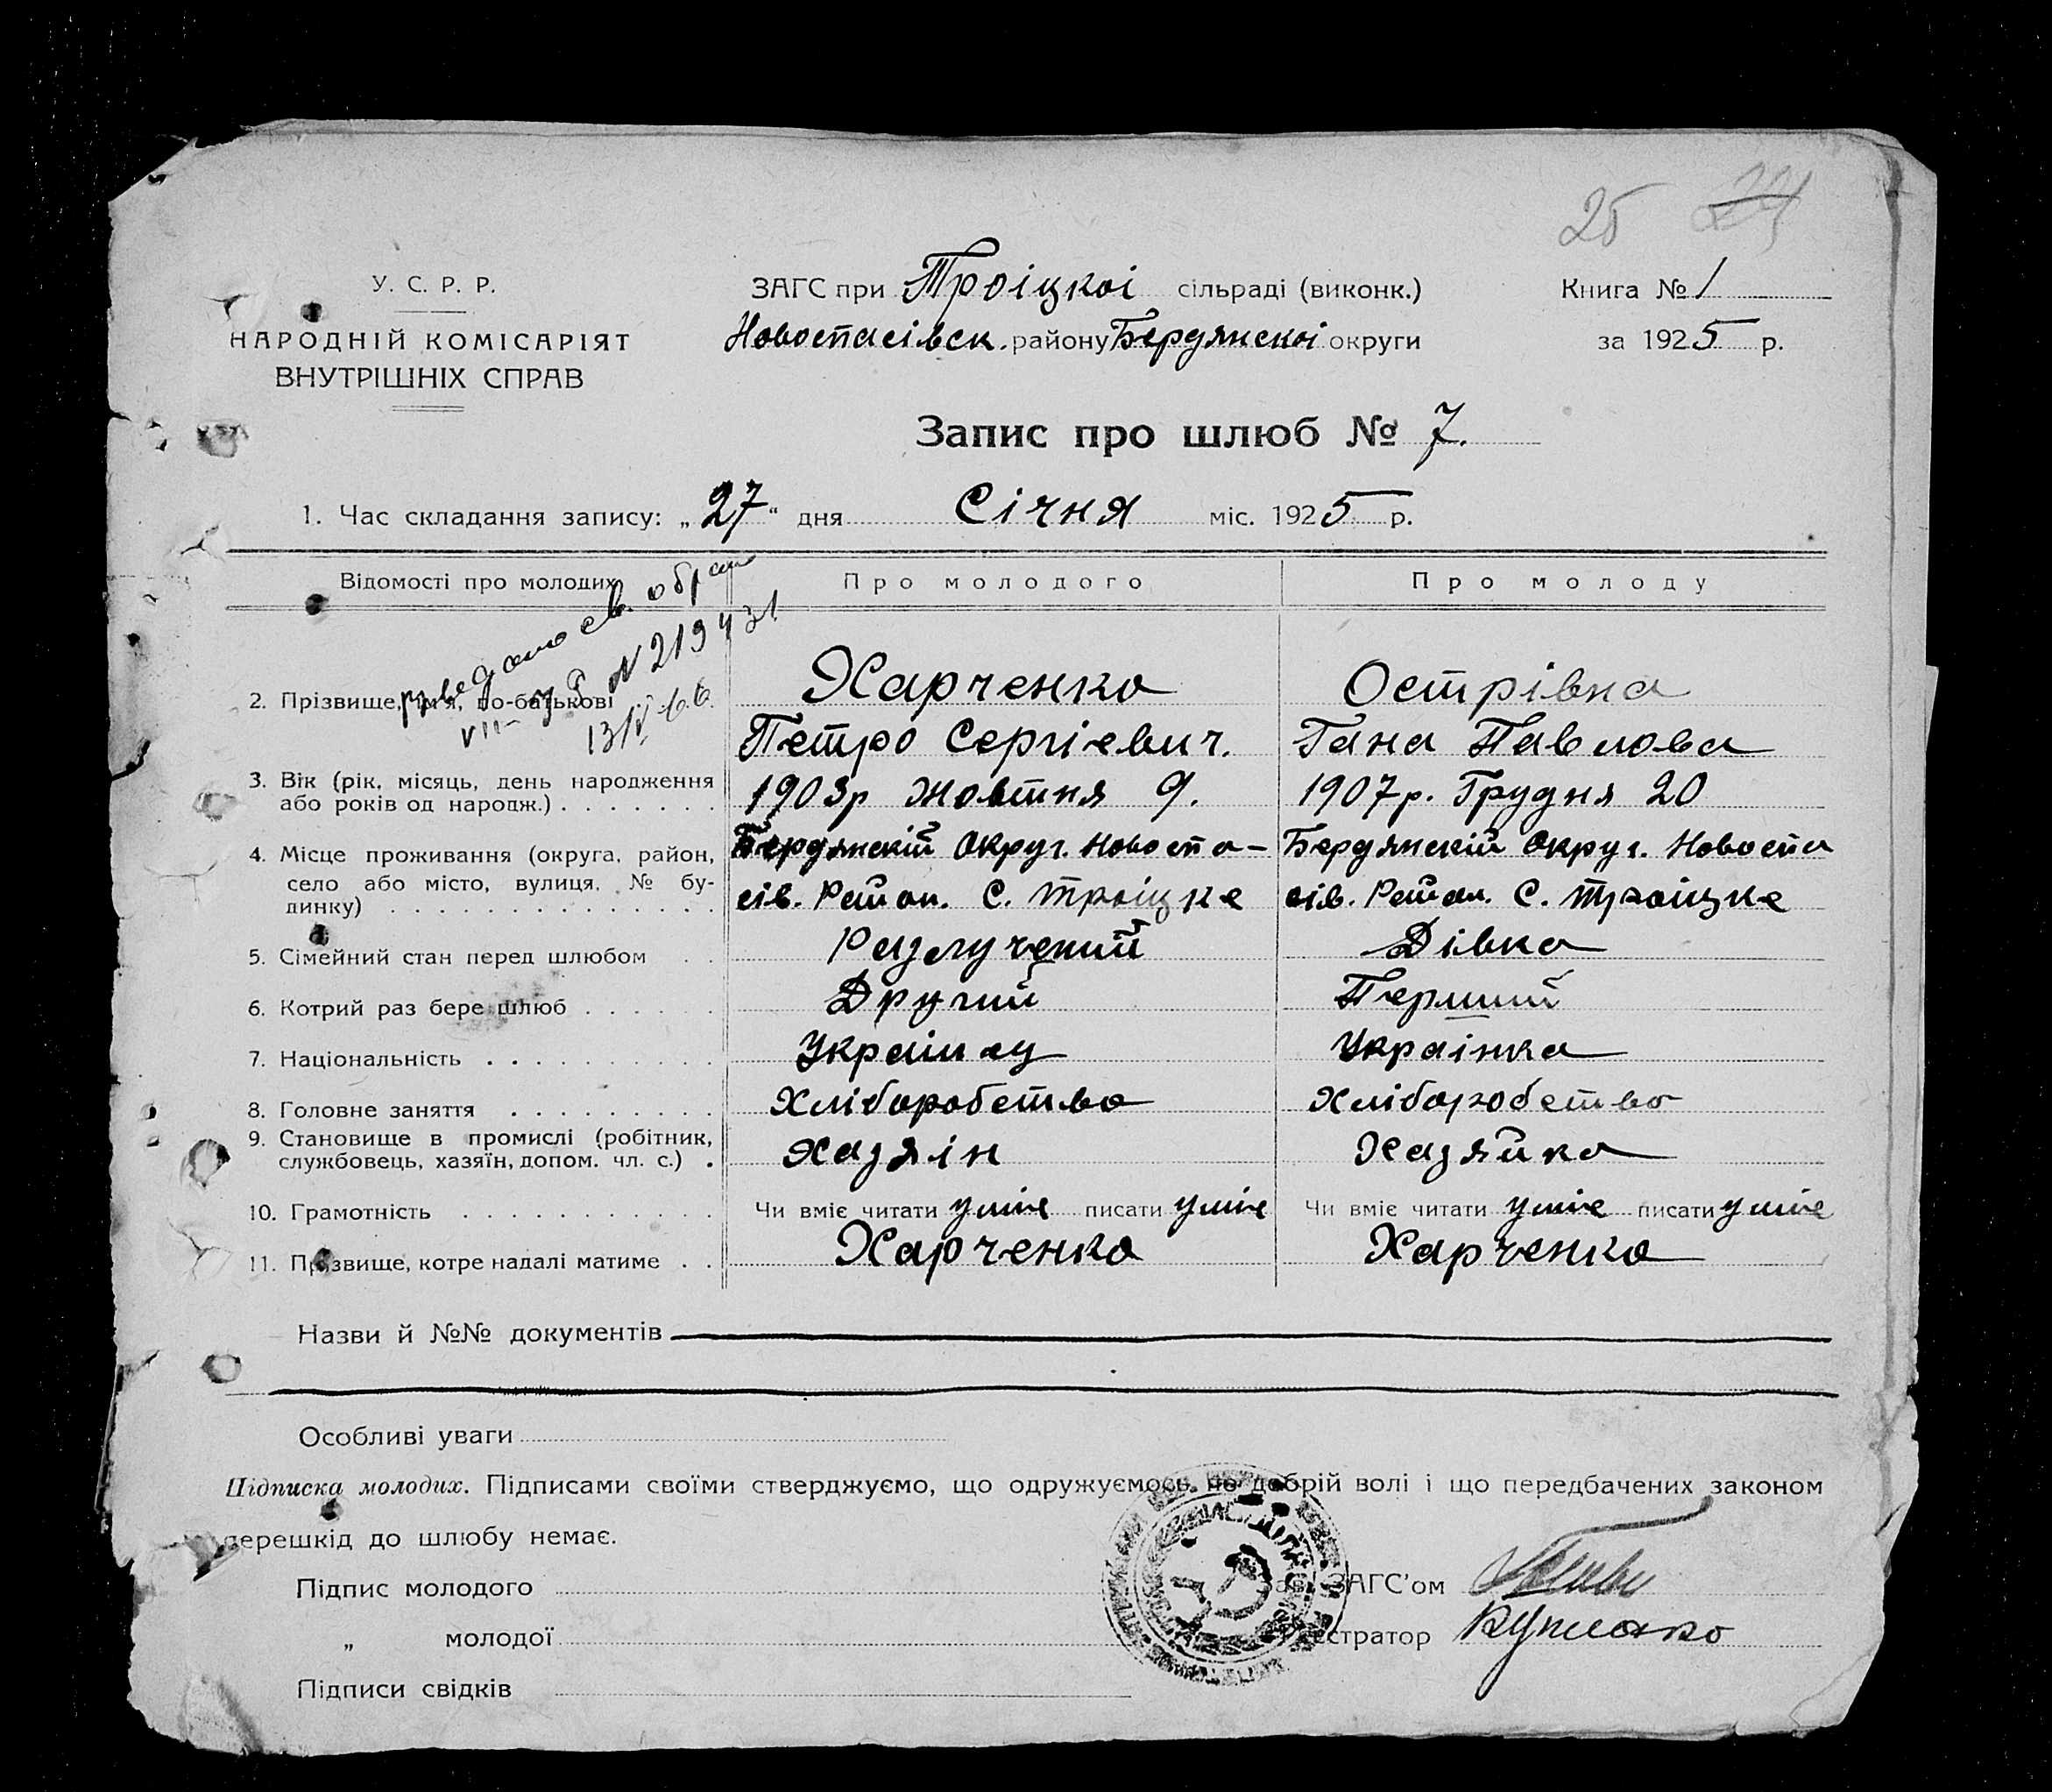 25 24
У. С. Р. Р.
НАРОДНІЙ КОМІСАРІЯТ
ВНУТРІШНІХ СПРАВ
ЗАГС при Троіцкоі сільраді (виконк.)
Новоспасівск. району Бердянскоі округи
Книга № 1
за 1925 р.
Запис про шлюб № 7.
1. Час складання запису: „27“ дня Січня міс. 1925 р.
Відомості про молодих
Про молодого
Про молоду
св. о бра
VII- N 219431
2. Прізвище, ім'я, по-батькові
Харченко
Острівна
Петро Сергіевич.
Гана Павлова
3. Вік (рік, місяць, день народження
або років од народж.)
1903р Жовтня 9.
1907р. Грудня 20
4. Місце проживання (округа, район,
село або місто, вулиця, № бу-
динку)
Бердянскій Округ. Новоспа-
сів. Район. С. Троіцке
Бердянскій Округ. Новоспа
сів. Район. С. Троіцке
5. Сімейний стан перед шлюбом
Разлучений
Дівка
6. Котрий раз бере шлюб
Другий
Перший
7. Національність
Украінец
Украінка
8. Головне заняття
Хліборобство
Хліборобство
9. Становище в промислі (робітник,
службовець, хазяїн, допом. чл. с.)
Хазяін
Хазяйка
10. Грамотність
Чи вміє читати уміє писати уміє
Чи вміє читати уміє писати уміє
11. Прізвище, котре надалі матиме
Харченко
Харченко
Назви й №№ документів
Особливі уваги
Підписка молодих. Підписами своїми стверджуємо, що одружуємось по добрій волі і що передбачених законом
перешкід до шлюбу немає.
Підпис молодого
Зав. ЗАГС'ом
„ молодої
Реєстратор
Підписи свідків